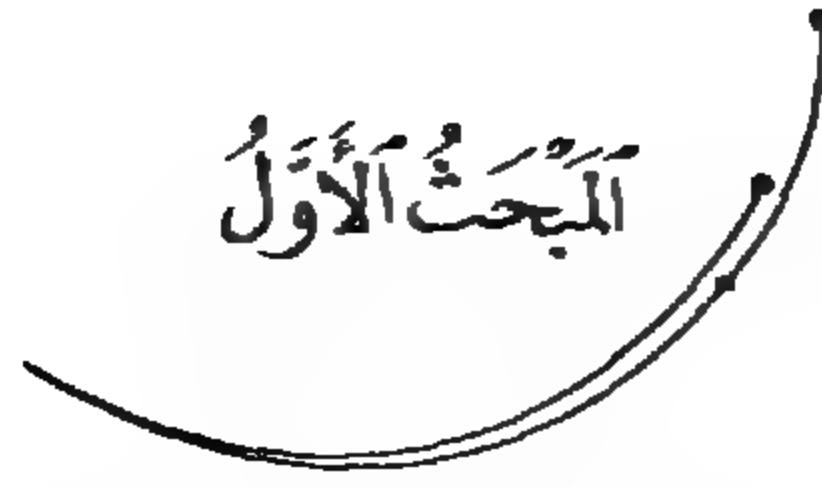 اَلْمَبْحَثُ اَلْأَوَّلُ